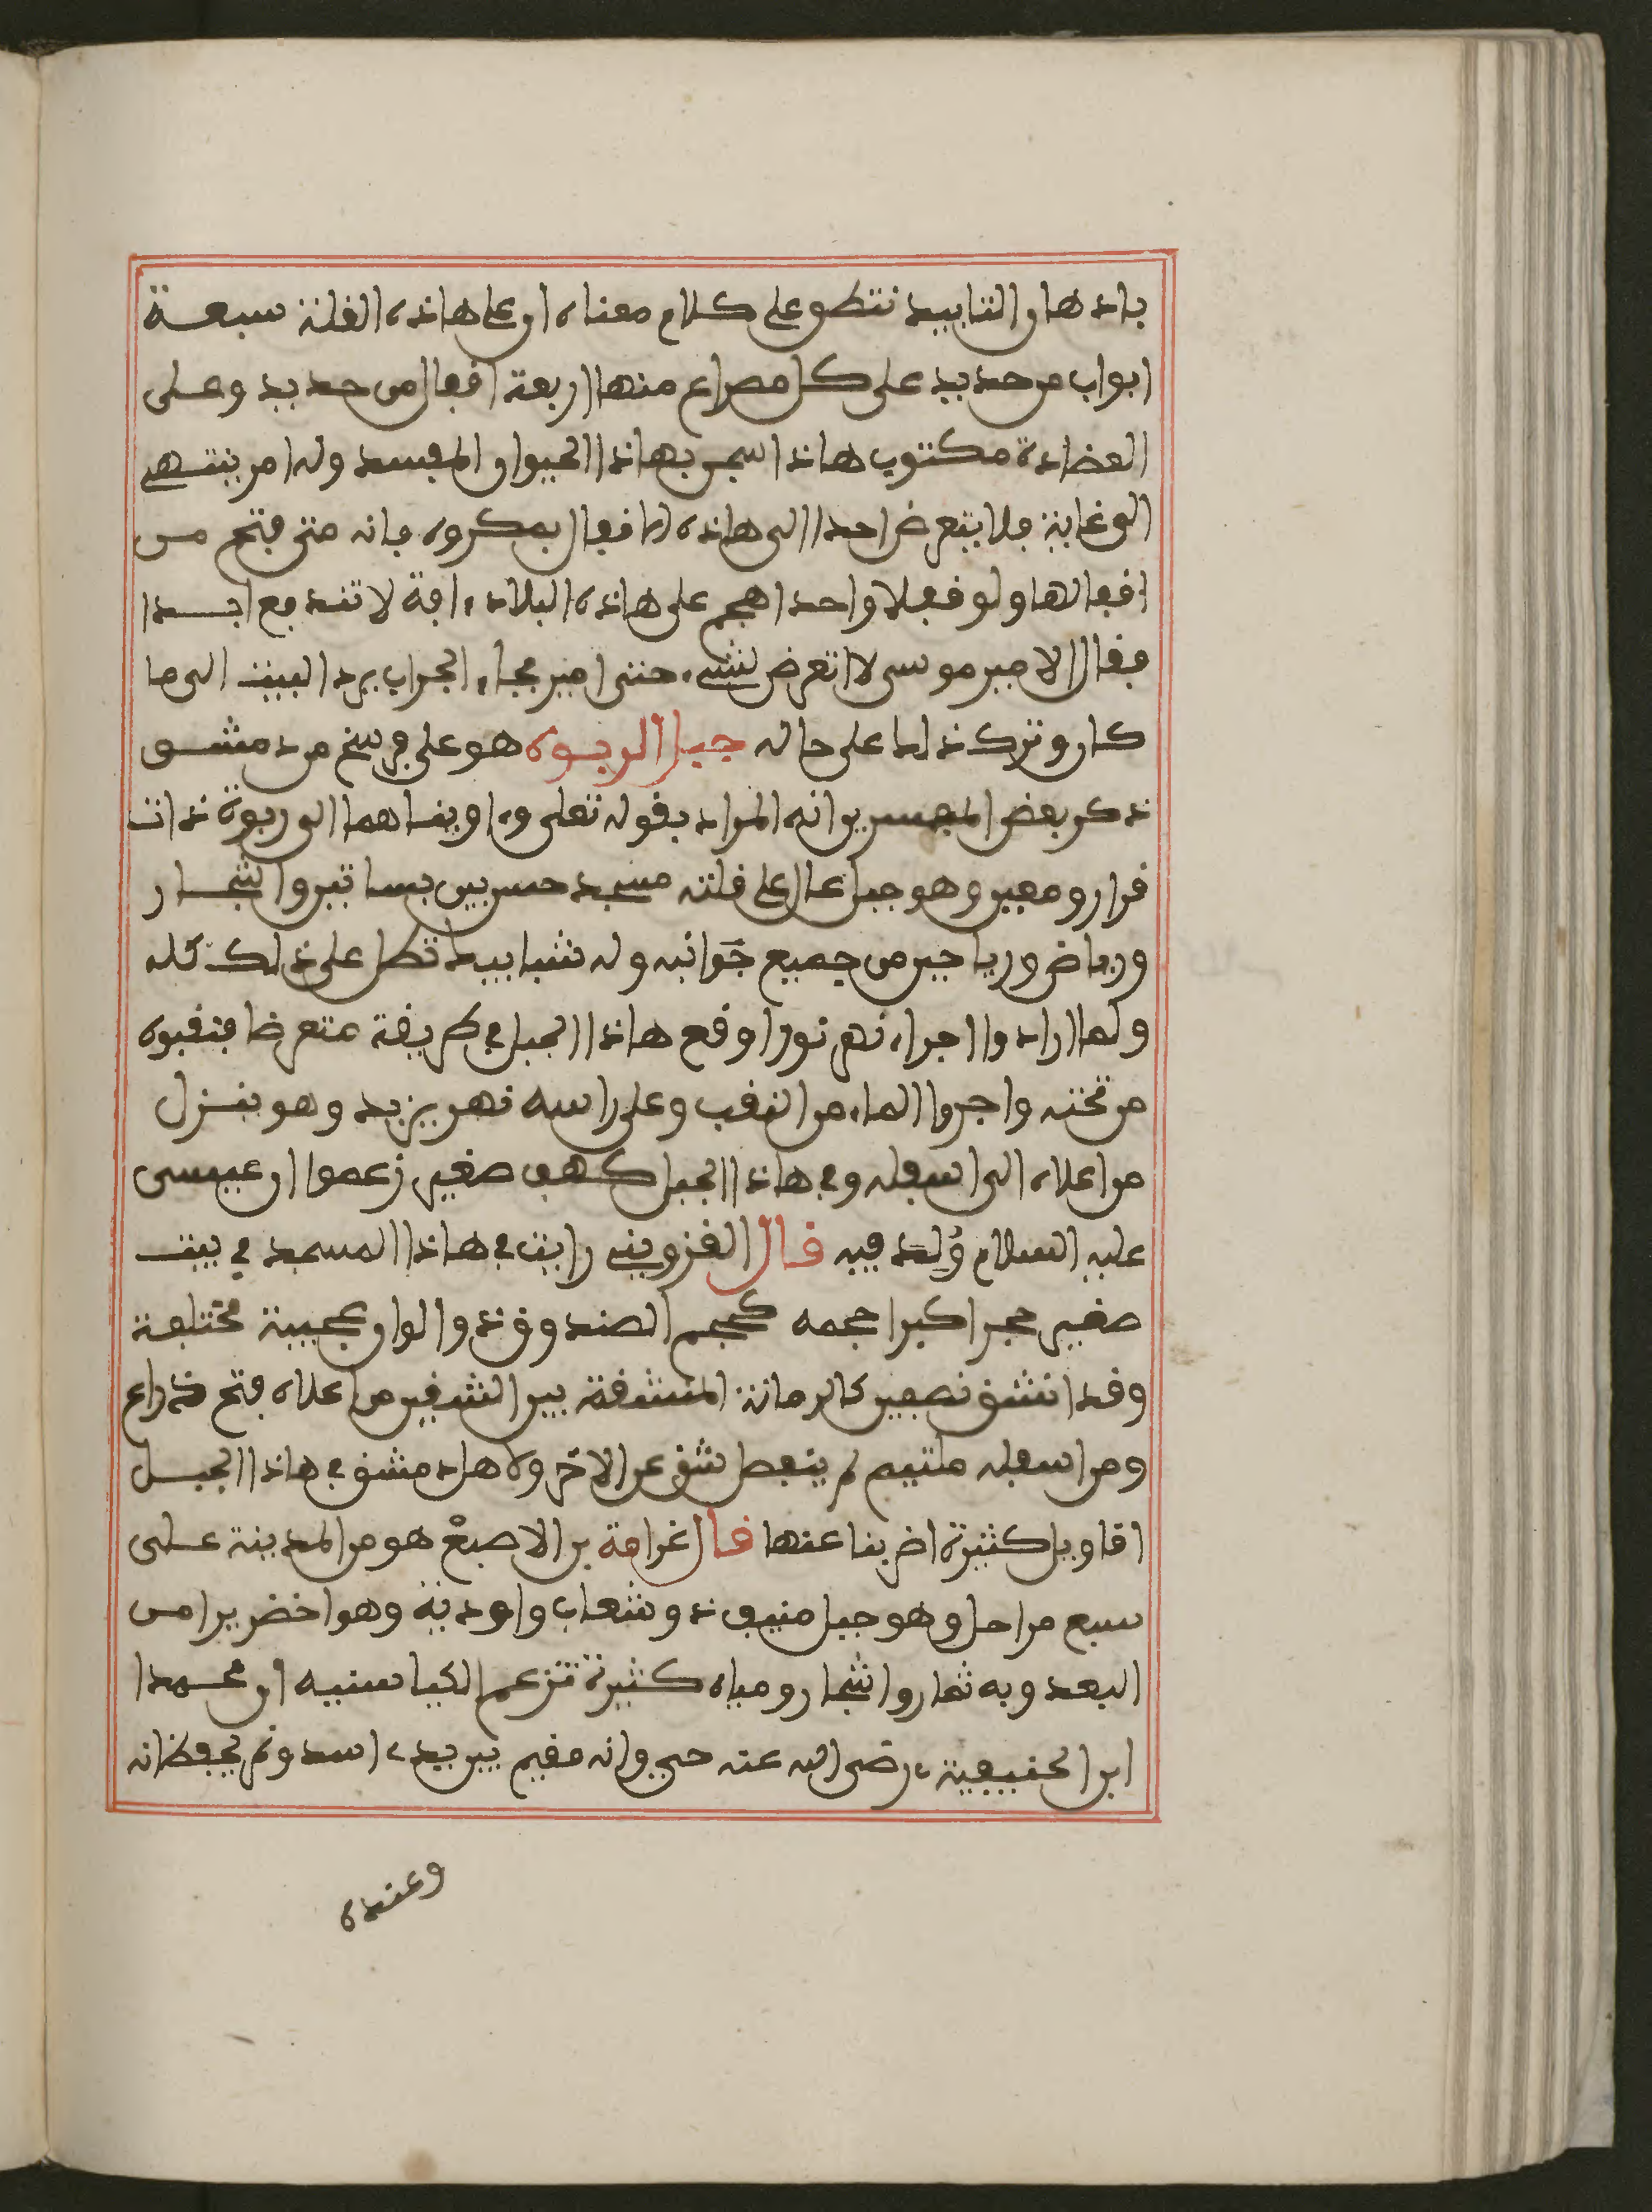 باذها والتنابيد تنطق على كلام معناه ان على هاذه القلة سبعة
ابواب من حديد على كل مصراع منها اربعة افعال من حديد وعلى
العضادة مكتوب هاذا سجن بهاذا الحيوان المفسد وله امر ينتهي
الى غاية فلا يتعرض احد االى هاذه الاقفال بمكروه فانه متى فتح من
اقفالها ولو قفلا واحدا هجم على هاذه البلاد ءافة لا تندفع ابدا
فقال الامير موسى لا اتعرض لشيء حتى امير فجاء الجواب برد البيت الى ما
كان وترك ذلك على حاله جبل الربوه هو على فرسخ من دمشق
ذكر بعض المفسرين انه المراد بقوله تعلى وءاويناهما الى ربوة ذات
قرار ومعين وهو جبل عال على قلته مسجد حسن بين بساتين واشجار
ورياض ورياحين من جميع جوانبه وله شبابيك تطل على ذلك كله
ولما ارادوا اجراء نهر نورا وقع هاذا الجبل في طريقة متعرضا فنقبوه
من تحته واجروا الماء من النقب وعلى راسه نهر يزيد وهو ينزل
من اعلاه الى اسفله وفي هاذا الجبل كهف صغير زعموا ان عيسى
عليه السلام ولد فيه قال القزويني رايت في هاذا المسجد في بيت
صغير حجرا كبرا حجمه كحجم الصندوق ذو الوان عجيبة مختلفة
وقد انشق نصفين كالرمانة المنشقة بين الشقين من اعلاه فتح ذراع
ومن اسفله ملتيم لم ينفصل شق عن الاخر ولاهل دمشق في هاذا الجبل
اقاويل كثيرة اضربنا عنها قال غرامة بن الاصبغ هو من المدينة على
سبع مراحل وهو جبل منيف ذو شعاب واودية وهو اخضر يرا من
البعد وبه ثمار واشجار ومياه كثيرة تزعم الكياسنيه ان محمدا
ابن الحنيفية رضى الله عنه حي وانه مقيم بين يدى اسد ونمر يحفظانه
وعنده